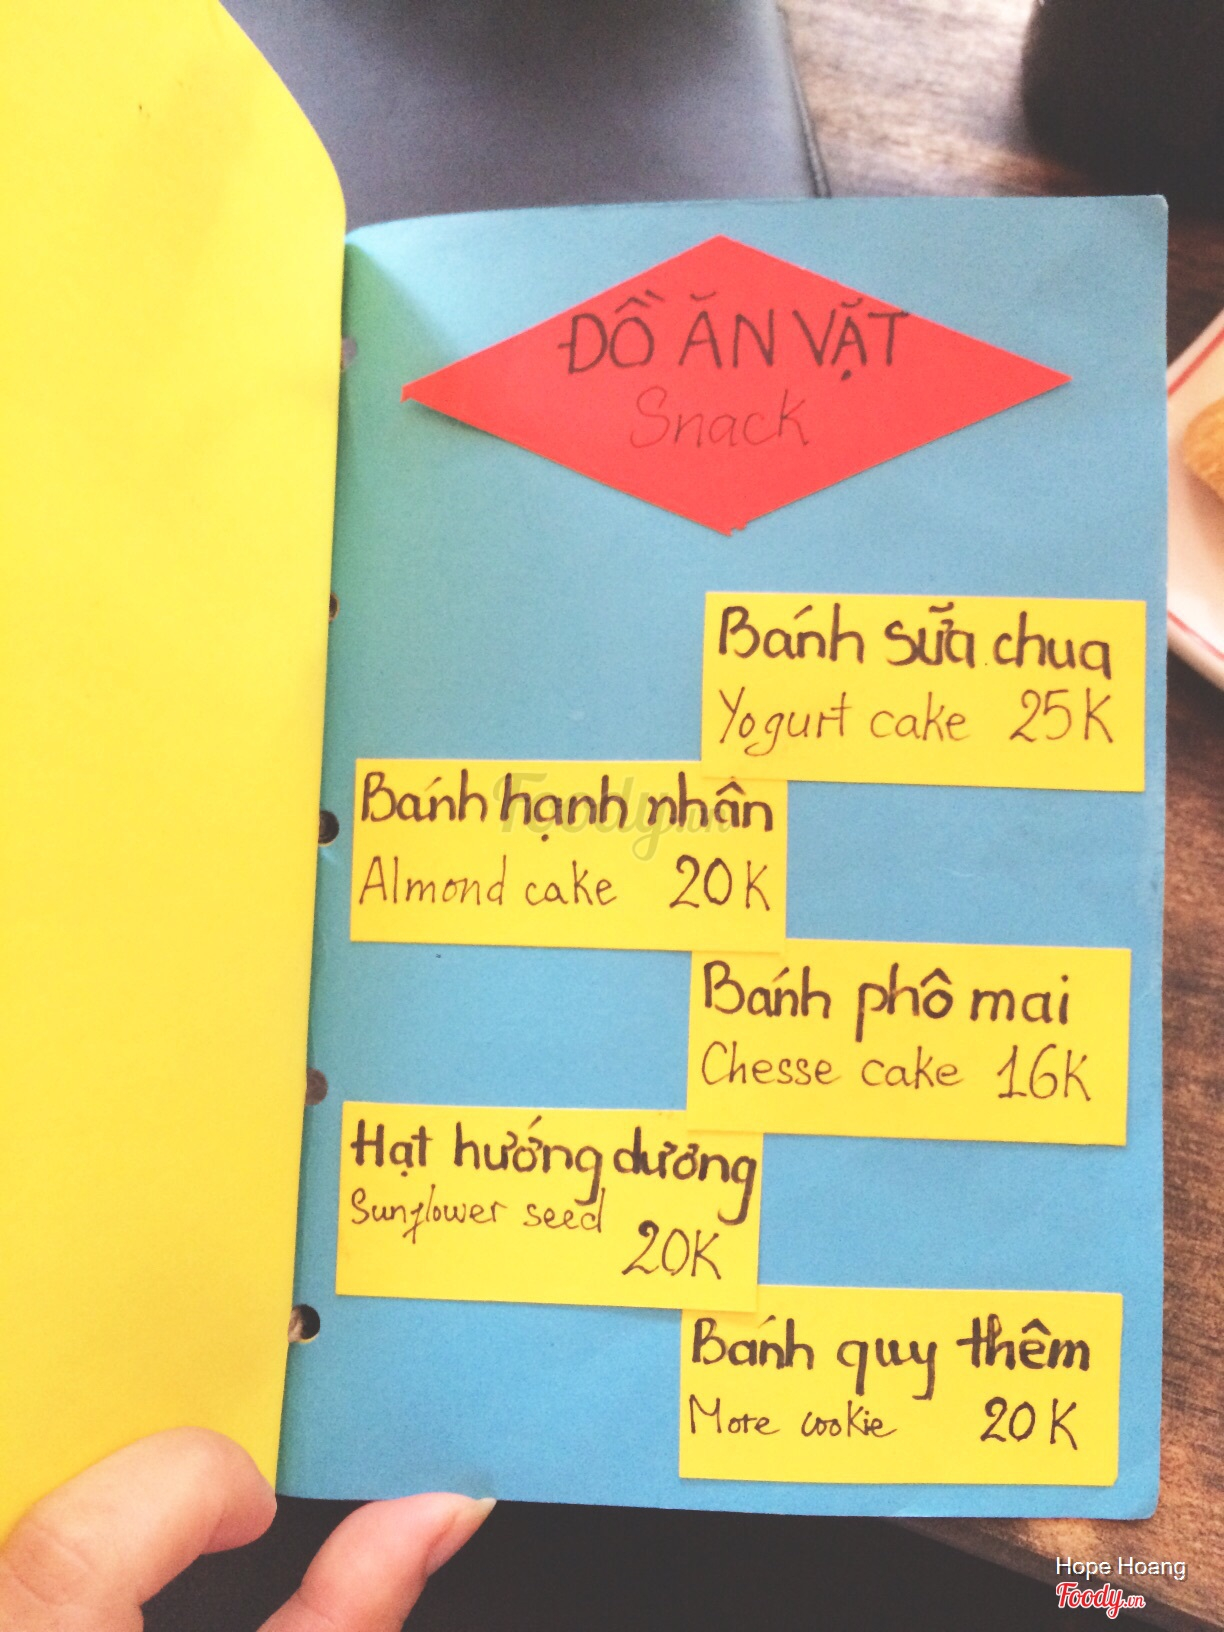 ĐỒ ĂN VẶT
Snack
Bánh sữa chua
Yogurt cake 25K
Bánh hạnh nhân
Almond cake 20K
Bánh phô mai
Chesse cake 16K
Hạt hướng dương
Sunflower seed
20K
Bánh quy thêm
More cookie 20K
Foody.vn
Hope Hoang
Foody.vn